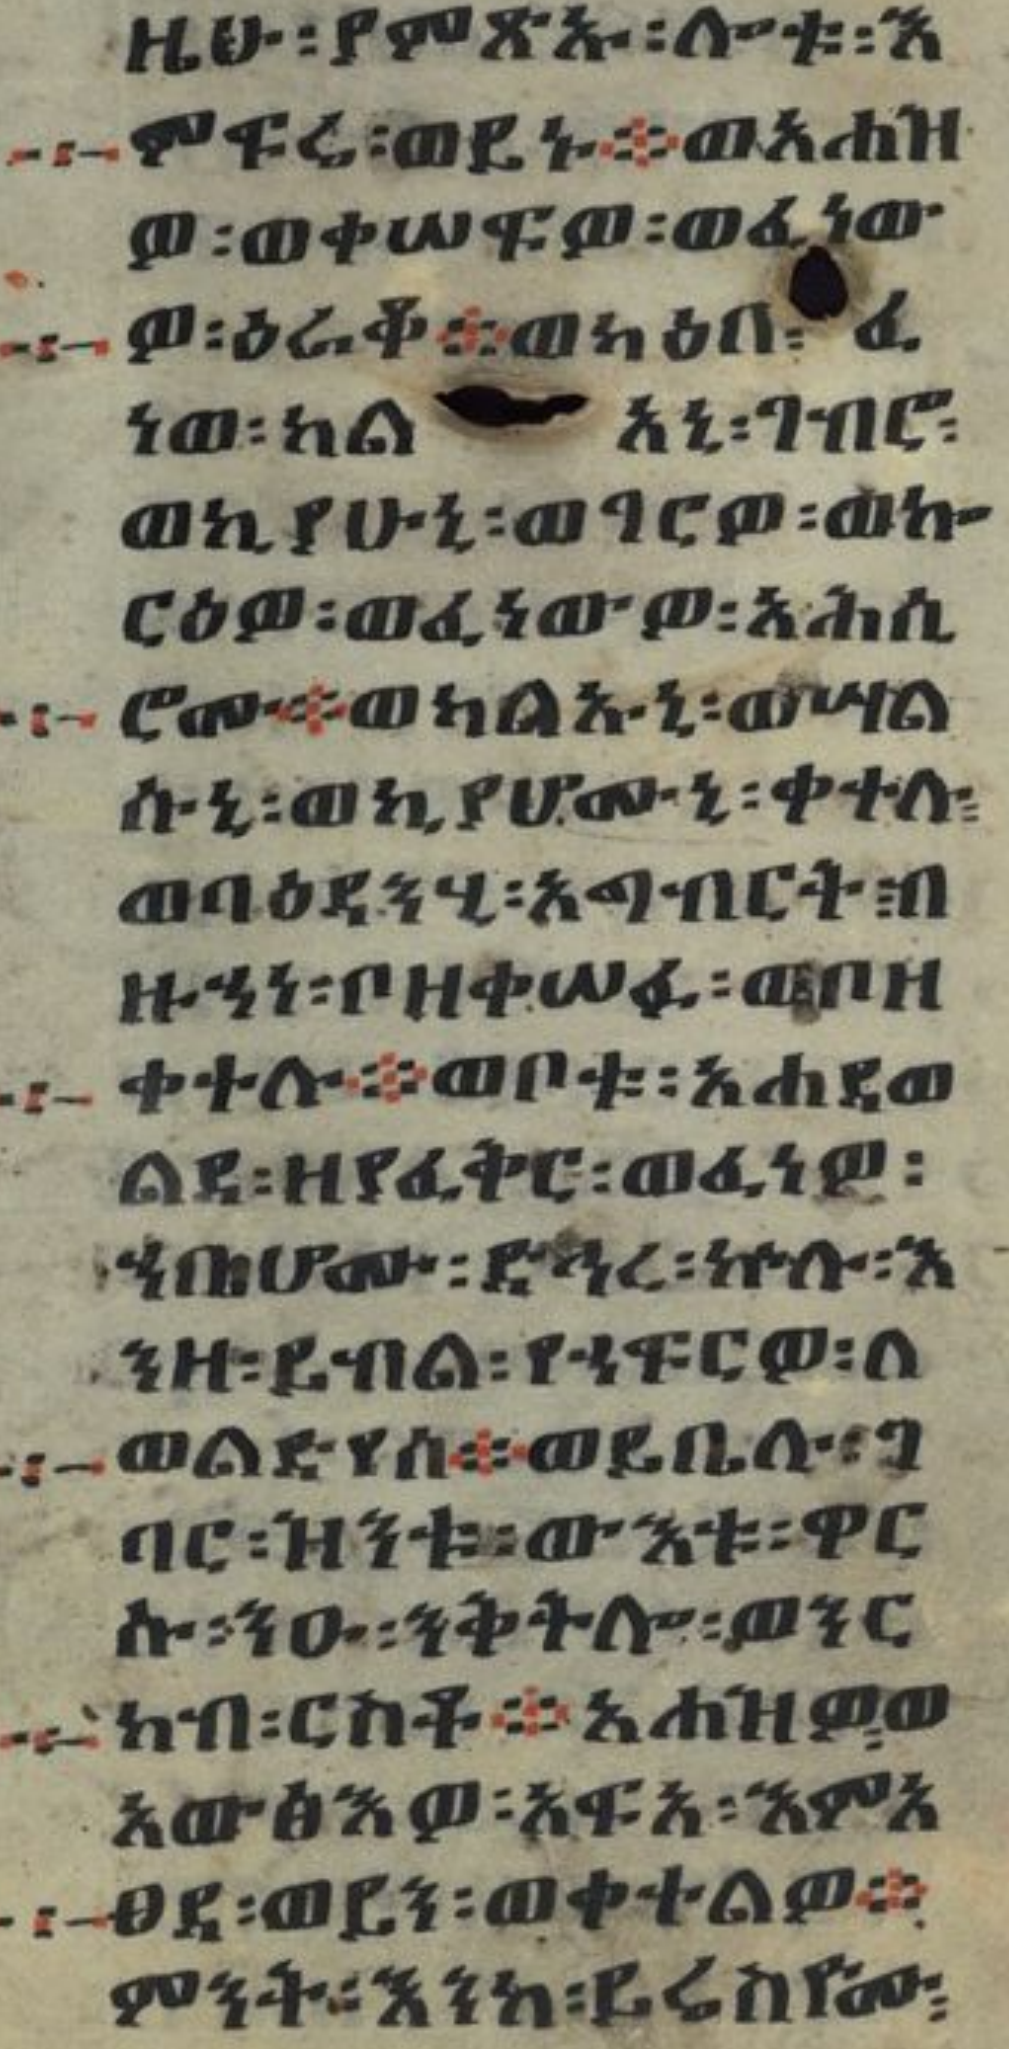 ዚሁ፡ያምጽኡ፡ሎቱ፡እ
ምፍሬ፡ወይኑ፨ወአሐዝ
ዎ፡ወቀሠፍዎ፡ወፈነው
ዎ፡ዕራቆ፨ወካዕበ፡ ፈ
ነወ፡ካል አኒ፡ገብሮ፡
ወኪያሁኒ፡ወገርዎ፡ወኩ
ርዕዎ፡ወፈነውዎ፡አሕሲ
ሮሙ፨ወካልኡኒ፡ወሣል
ሱኒ፡ወኪያሆሙኒ፡ቀተሉ፡
ወባዕዳንሂ፡አግብርት፡ብ
ዙኃነ፡ቦዘቀሠፉ፡ወቦዘ
ቀተሉ፨ወቦቱ፡አሐደወ
ልደ፡ዘያፈቅር፡ወፈነዎ፡
ኃቤሆሙ፡ድኅረ፡ኵሉ፡እ
ንዘ፡ይብል፡የኃፍርዎ፡ለ
ወልድየሰ፨ወይቤሉ፡ገ
ባር፡ዝንቱ፡ውእቱ፡ዋር
ሱ፡ንዑ፡ንቅትሎ፡ወንር
ከብ፡ርስቶ፨አሐዝዎ፡ወ
አውፅእዎ፡አፍአ፡እምአ
ፀደ፡ወይን፡ወቀተልዎ፨
ምንት፡እንከ፡ይሬስዮሙ፡